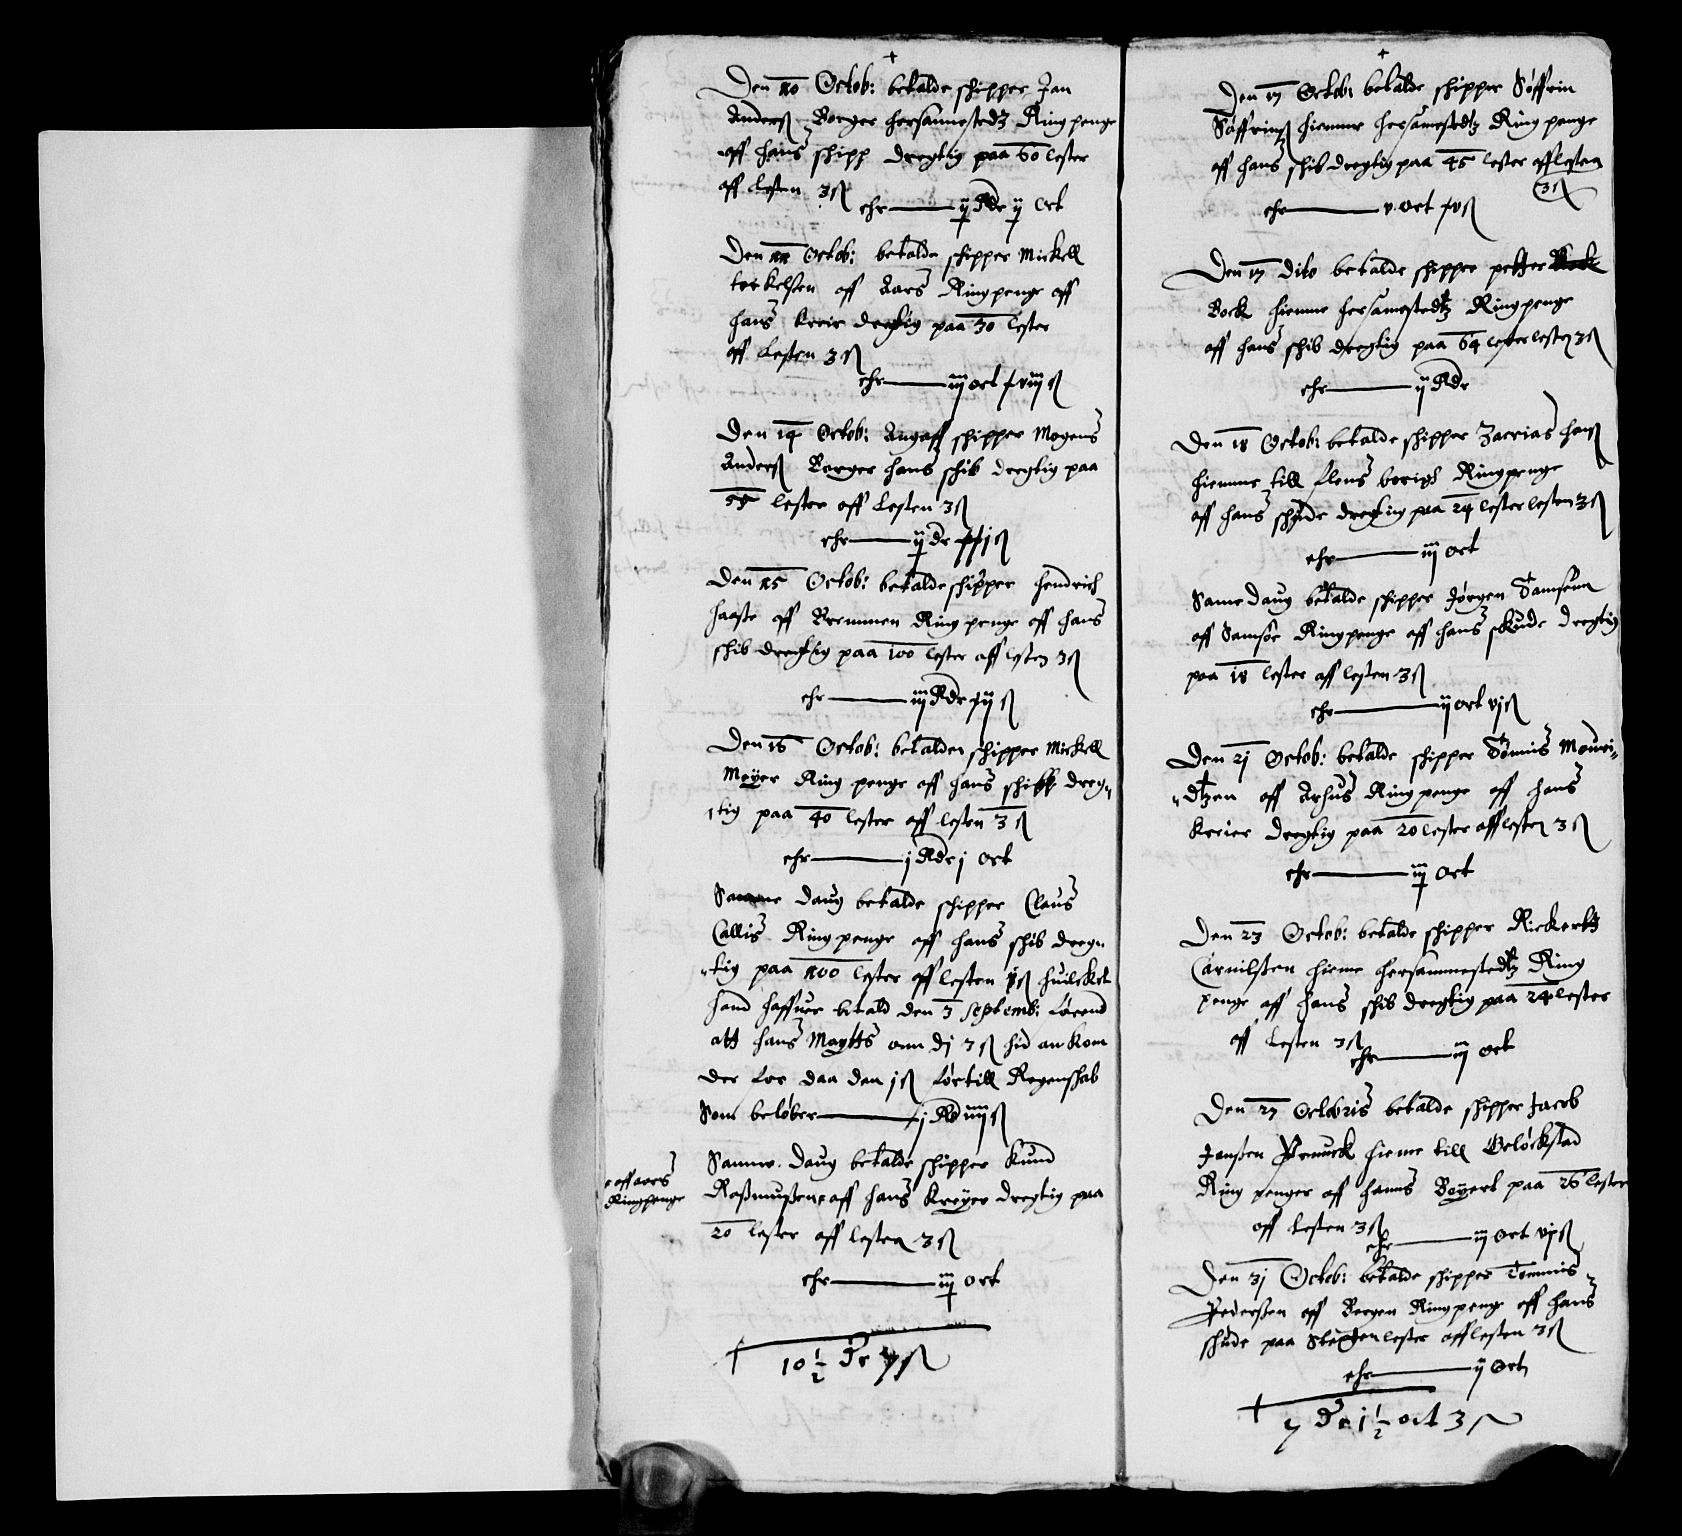 Den 10 Octob: betalde schipper Jan
Anderß Borger hersammestedtz Ring penge
off hans schipp dregtig paa 60 lester
off Lesten 3 ß
ehr ij Rdr ij ort
Den 11 Octob: betalde schipper Mickell
torkelsen off Aars Ring penge off
hans kreir dregtig paa 30 lester
off Lesten 3 ß
ehr iij ort xviij ß
Den 14 Octob: Angaff schipper Mogens
Anderß Borger hans schib dregtig paa
55 lester off Lesten 3 ß
ehr ij dr xxj ß
Den 15 Octob: betalde schipper hendrich
haaste off Bremmen Ring penge off hans
schib dregtig paa 100 lester off lesten 3 ß
ehr iij Rdr xij ß
Den 16 Octob: betalden schipper Mickell
Meyer Ring penge off hans schipp dreg-
tig paa 40 lester off lesten 3 ß
ehr j Rdr j ort
Samme daug betalde schipper Claus
Callis Ring penge off hans schib dreg-
tig paa 100 lester off lesten ß huilcket
hand haffuer betald den 3 Septemb:
att hans om dj 3 ß hid ankom
der for daa den j ß førtill Regenskab
Som beløber j Rd iiij ß
Samme daug betalde schipper knud
off aars
Ringpenge
Raßmußen off hans kreyer dregtig paa
20 lester off lesten 3 ß
ehr iij ort
10 1/2 dr ß
Den 17 Octob: betalde schipper Søffren
Søffrenß hiemme hersamestedtz Ring penge
off hans schib dregtig paa 45 lester off lesten
3 ß
ehr v ort xv ß
Den 17 dito betalde schipper petter
Bock hiemme hersamestedtz Ring penge
off hans schib dregtig paa 64 lester lesten 3 ß
ehr ij Rdr
Den 18 Octob: betalde schipper Zacrias hanß
hiemme till flens borigh Ring penge
off hans schude dregtig paa 24 lester lesten 3 ß
ehr iij ort
Same daug betalde schipper Jørgen Samsønn
off Samsøe Ring penge off hans skude dregtig
paa 18 lester off lesten 3 ß
ehr ij ort vj ß
Den 21 Octob: betalde schipper Tønnis Mouri-
dtzen off Arhus Ring penge off hans
kreier dregtig paa 20 lester off lesten 3 ß
ehr iij ort
Den 23 Octob: betalde schipper Rickertt
Carnilsen hieme hersammestedtz Ring
penge off hans schib dregtig paa 24 lester
off Lesten 3 ß
ehr iij ort
Den 27 Octobris betalde schipper Jacob
Janßen hieme till Gelückstad
Ring penger off hanns Boyert paa 26 lester
off Lesten 3 ß
ehr iij ort vj ß
Den 31 Octob: betalde schipper Tommis
Pederßen off Bergen Ring penge off hans
schude paa Sexten lester off lesten 3 ß
ehr ij ort
7 dr 1 1/2 ort 3 ß